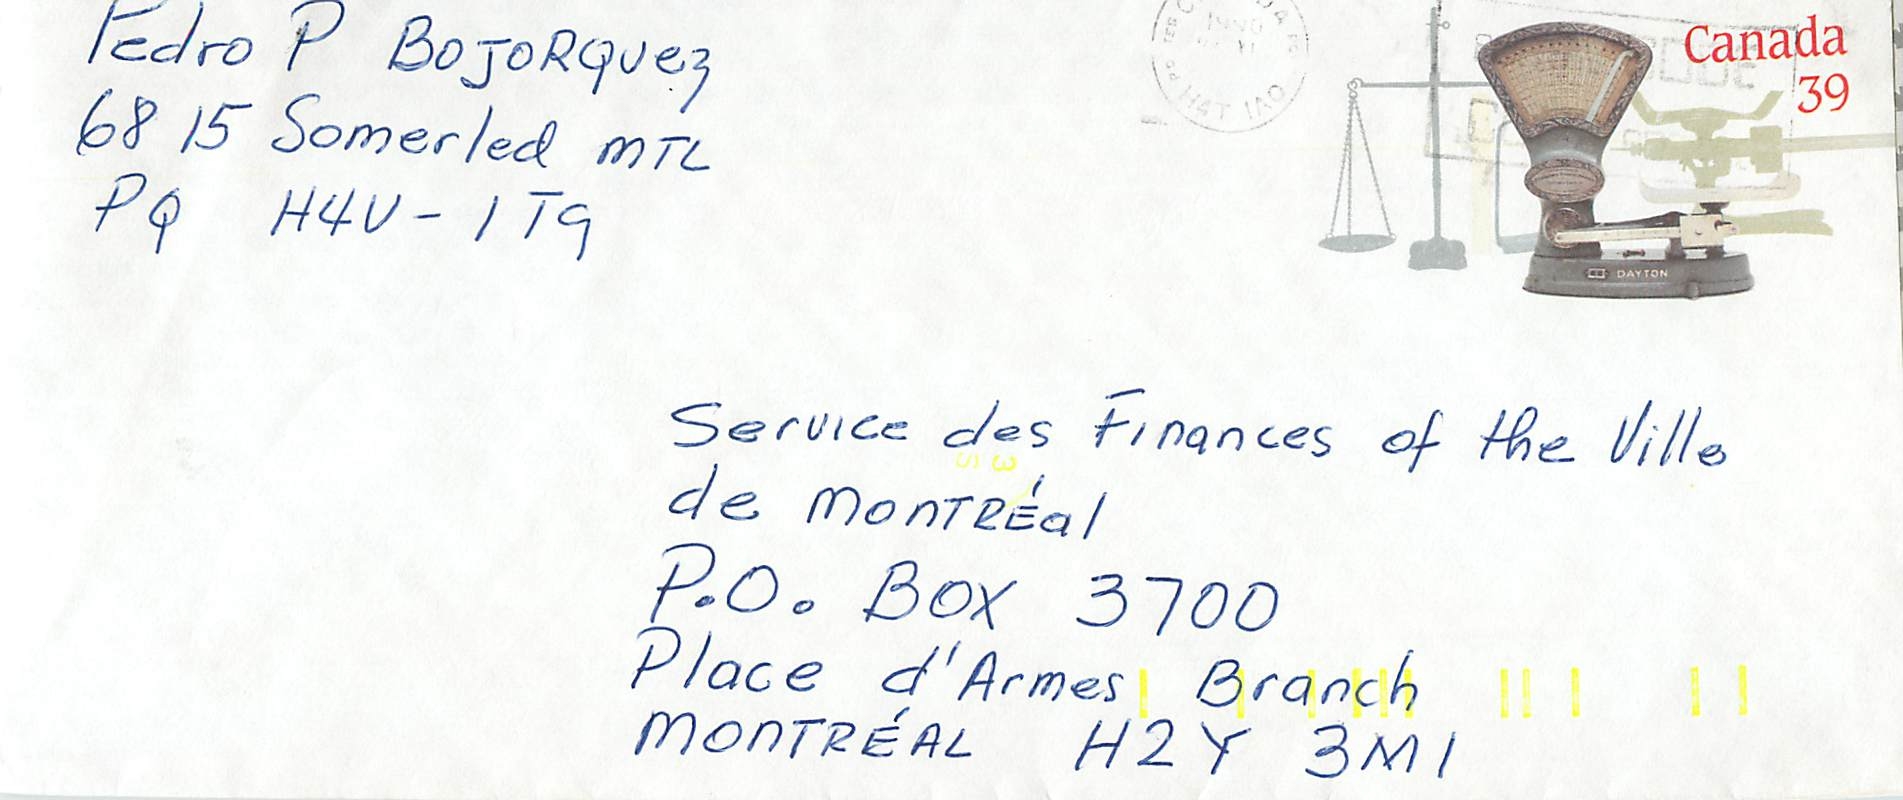 Pedro P BOJORQuez
68 15 Somerled MTL
PQ H4V-1T9
1990
H4T 1A0
Canada
39
DAYTON
Service des Finances of the Ville
de MONTRÉal
P.O. BOX 3700
Place d'Armes Branch
MONTRÉAL H2Y 3M1